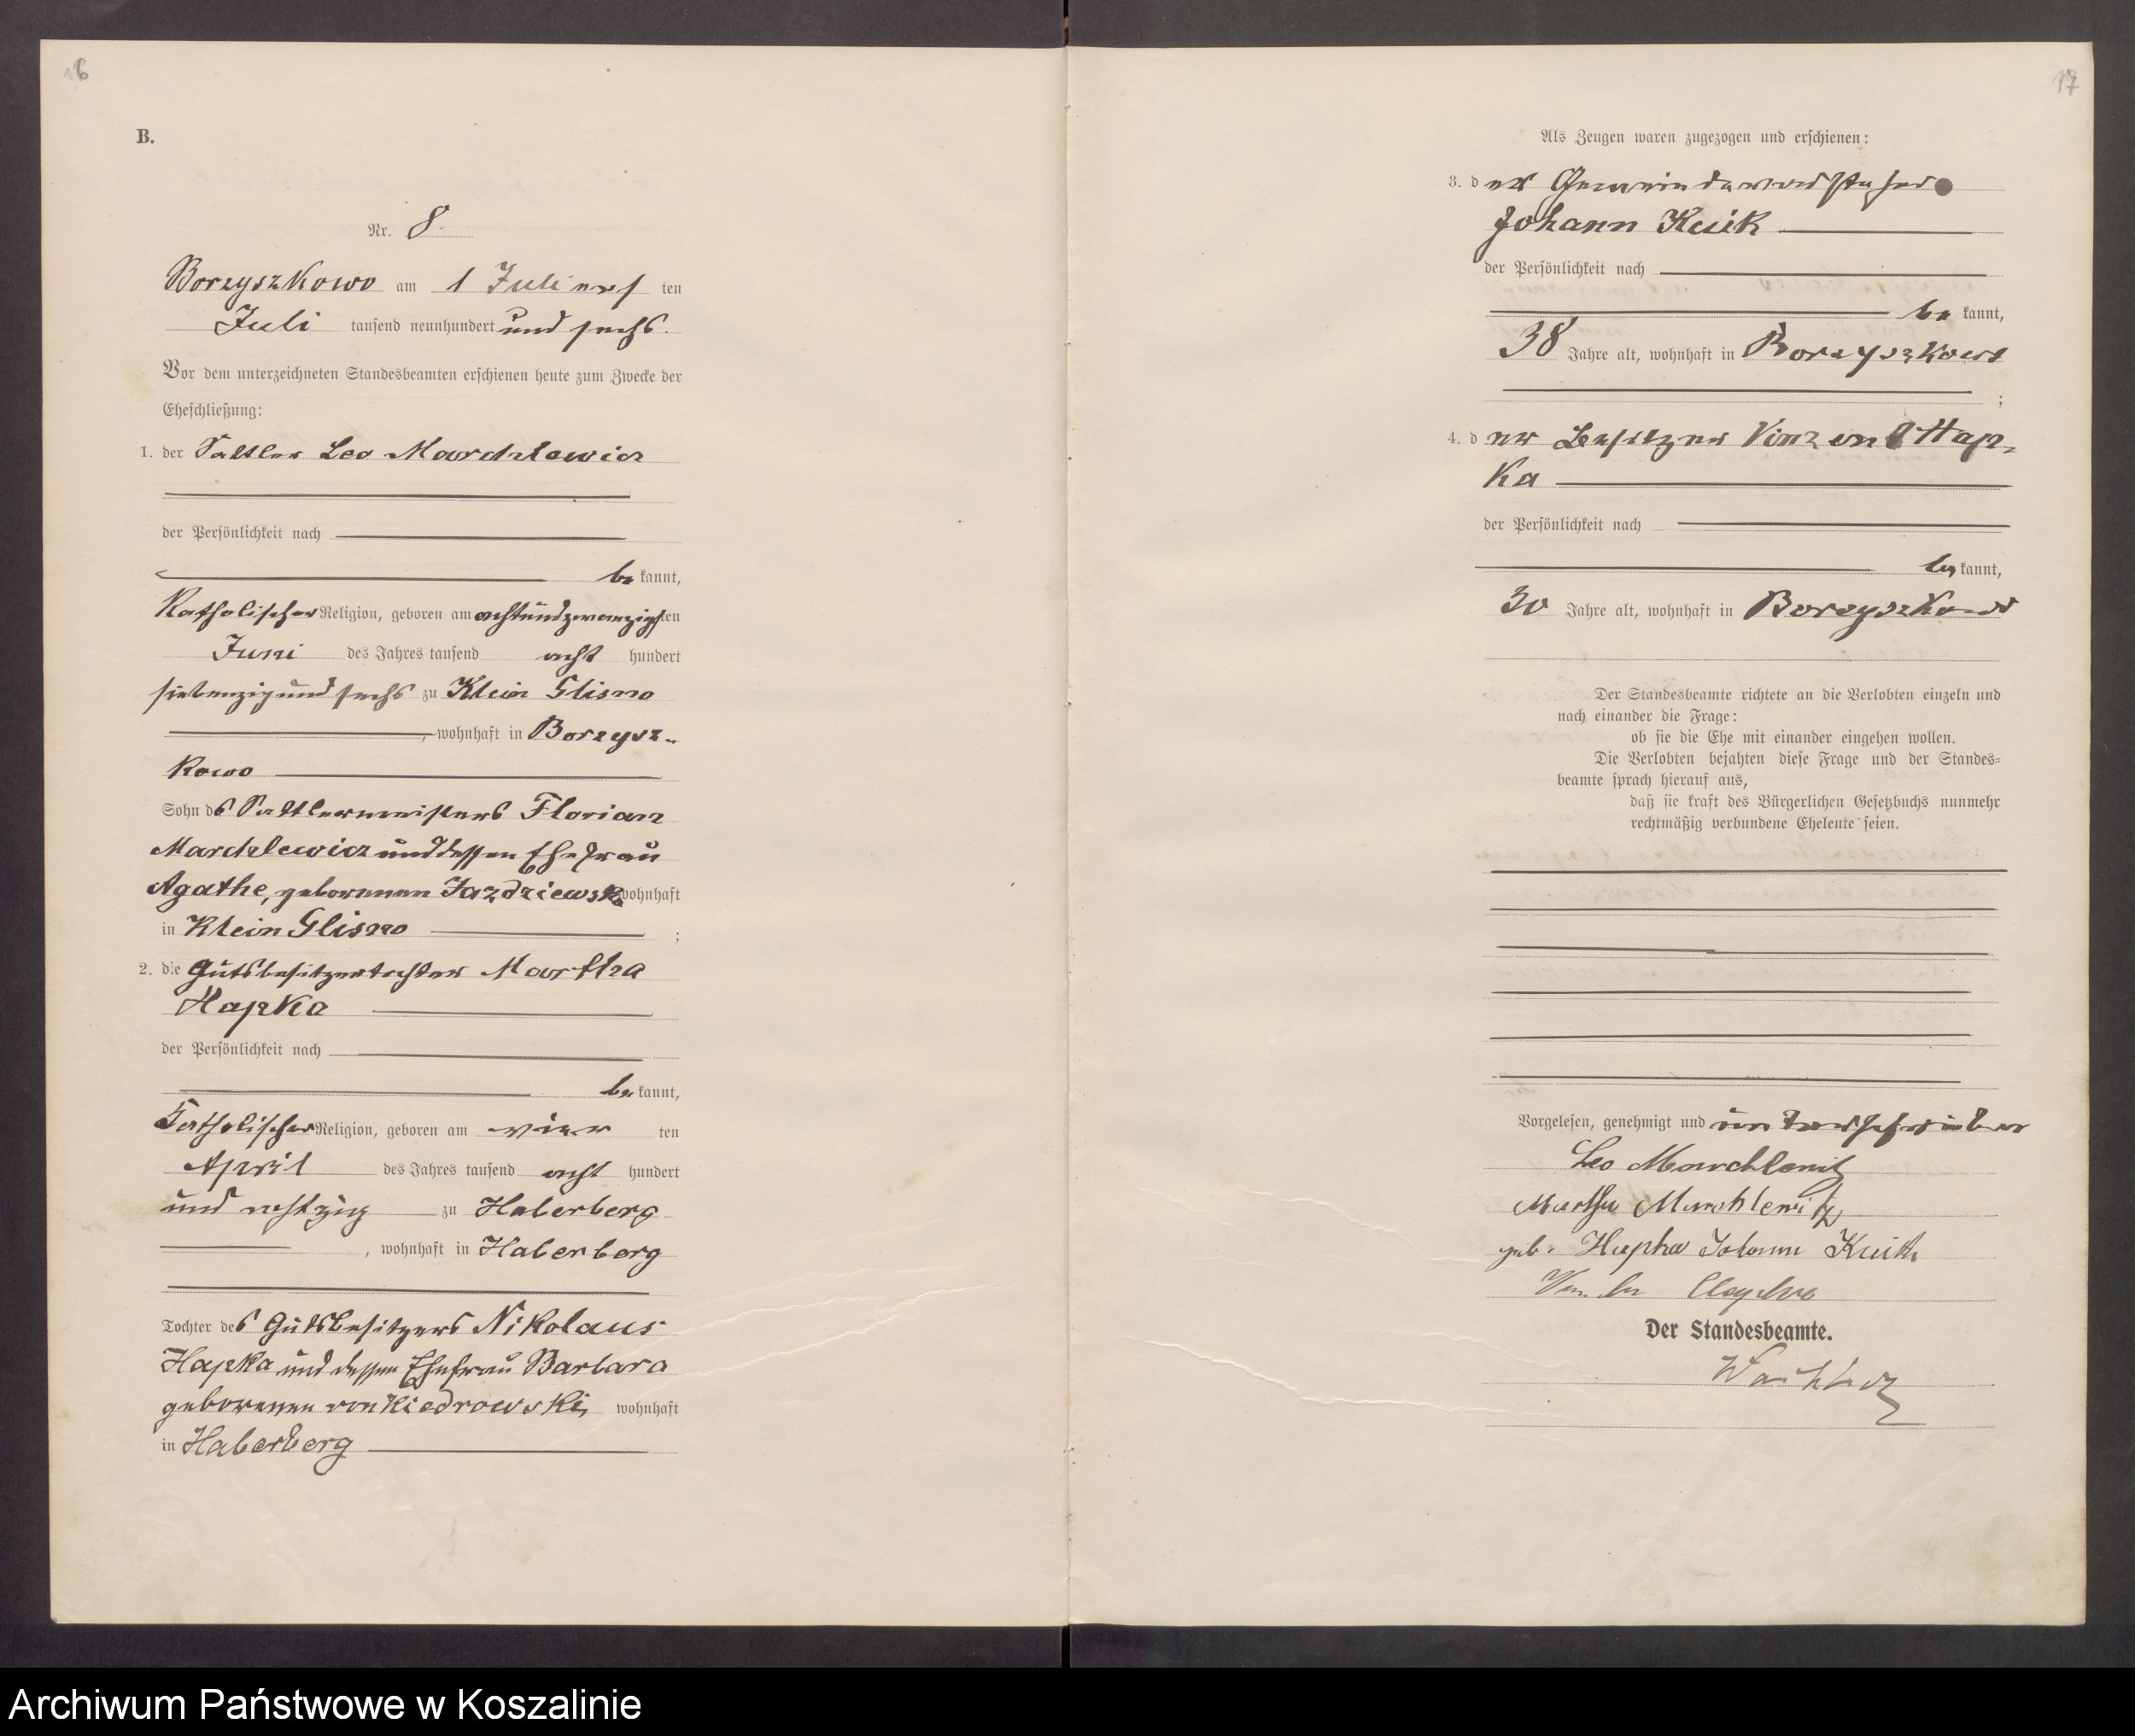 16
B.
Nr. 8.
Borzyszkowo am 1 Juli ers ten
Juli tausend neunhundert und sechs.
Vor dem unterzeichneten Standesbeamten erschienen heute zum Zwecke der
Eheschließung:
1. der Sattler Leo Marchlewicz
der Persönlichkeit nach
be kannt,
Katholischer Religion, geboren am achtundzwanzigsten
Juni des Jahres tausend acht hundert
siebenzig und sechs zu Klein Glisno
, wohnhaft in Borzysz-
kowo
Sohn des Sattlermeisters Florian
Marchlewicz und dessen Ehefrau
Agathe, geborenen Jazdziewski wohnhaft
in Klein Glisno ;
2. die Gutsbesitzertochter Martha
Hapka
der Persönlichkeit nach
be kannt,
Katholischer Religion, geboren am vier ten
April des Jahres tausend acht hundert
und achtzig zu Haberberg
, wohnhaft in Haberberg
Tochter des Gutsbesitzers Nikolaus
Hapka und dessen Ehefrau Barbara
geborenen von Kiedrowski, wohnhaft
in Haberberg
17
Als Zeugen waren zugezogen und erschienen:
3. der Gemeindevorsteher
Johann Kuik
der Persönlichkeit nach
be kannt,
38 Jahre alt, wohnhaft in Borzyszkowo
;
4. der Besitzer Vinzent Hap-
ka
der Persönlichkeit nach
be kannt,
30 Jahre alt, wohnhaft in Borzyszkowo
Der Standesbeamte richtete an die Verlobten einzeln und
nach einander die Frage:
ob sie die Ehe mit einander eingehen wollen.
Die Verlobten bejahten diese Frage und der Standes=
beamte sprach hierauf aus,
daß sie kraft des Bürgerlichen Gesetzbuchs nunmehr
rechtmäßig verbundene Eheleute seien.
Vorgelesen, genehmigt und unterschrieben
Leo Marchlewitz
Martha Marchlewitz
geb. Hapka Johann Kuik
Der Standesbeamte.
Archiwum Państwowe w Koszalinie